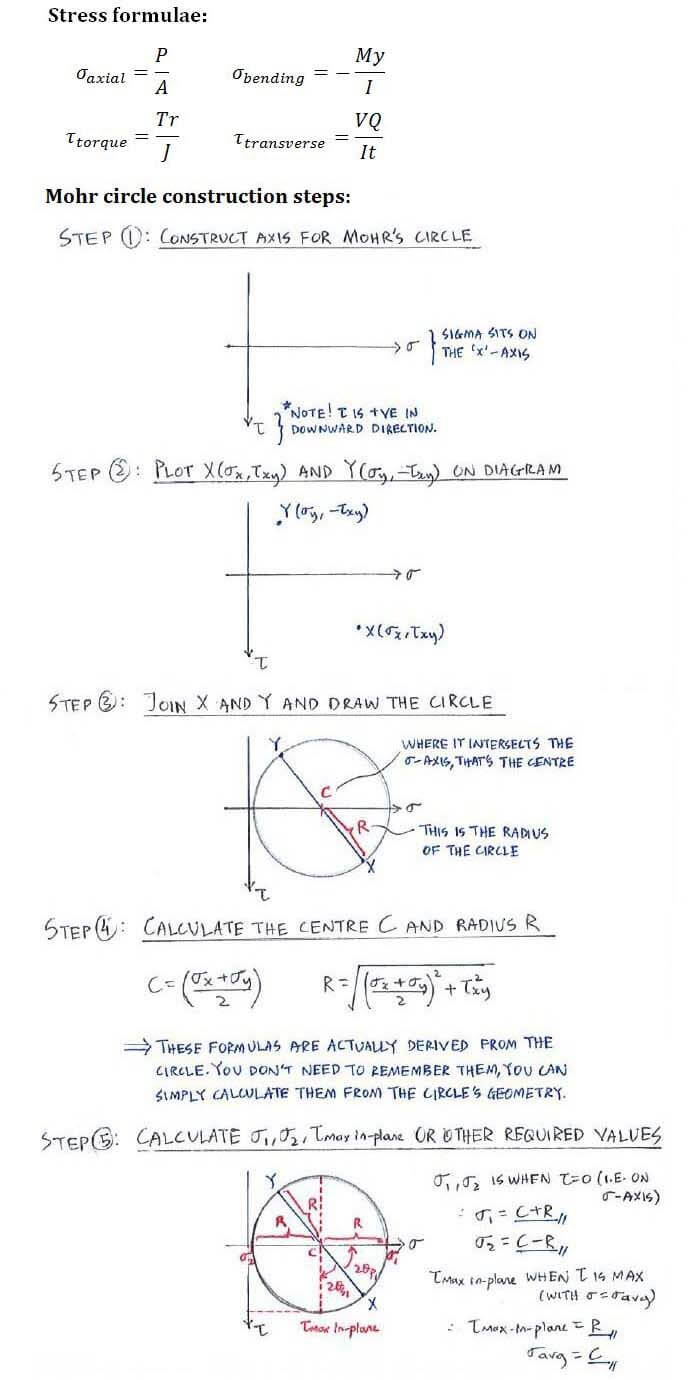 Stress formulae:
σ_axial = P/A σ_bending = − My/I
τ_torque = Tr/J τ_transverse = VQ/It
Mohr circle construction steps:
STEP ①: CONSTRUCT AXIS FOR MOHR'S CIRCLE
σ } SIGMA SITS ON
THE 'x'-AXIS
τ } *NOTE! τ IS +VE IN
DOWNWARD DIRECTION.
STEP ②: PLOT X(σx, τxy) AND Y(σy, −τxy) ON DIAGRAM
Y(σy, −τxy)
σ
X(σx, τxy)
τ
STEP ③: JOIN X AND Y AND DRAW THE CIRCLE
Y
WHERE IT INTERSECTS THE
σ-AXIS, THAT'S THE CENTRE
C
σ
R
THIS IS THE RADIUS
OF THE CIRCLE
X
τ
STEP ④: CALCULATE THE CENTRE C AND RADIUS R
C = (σx + σy / 2) R = √((σx + σy / 2)² + τxy²)
⇒ THESE FORMULAS ARE ACTUALLY DERIVED FROM THE
CIRCLE. YOU DON'T NEED TO REMEMBER THEM, YOU CAN
SIMPLY CALCULATE THEM FROM THE CIRCLE'S GEOMETRY.
STEP ⑤: CALCULATE σ1, σ2, τmax in-plane OR OTHER REQUIRED VALUES
Y
R
R
R
σ2
C
σ1
σ
2θp1
2θs1
X
τ
τmax In-plane
σ1, σ2 IS WHEN τ=0 (I.E. ON
σ-AXIS)
∴ σ1 = C+R//
σ2 = C−R//
τmax in-plane WHEN τ IS MAX
(WITH σ = σavg)
∴ τmax-in-plane = R//
σavg = C//